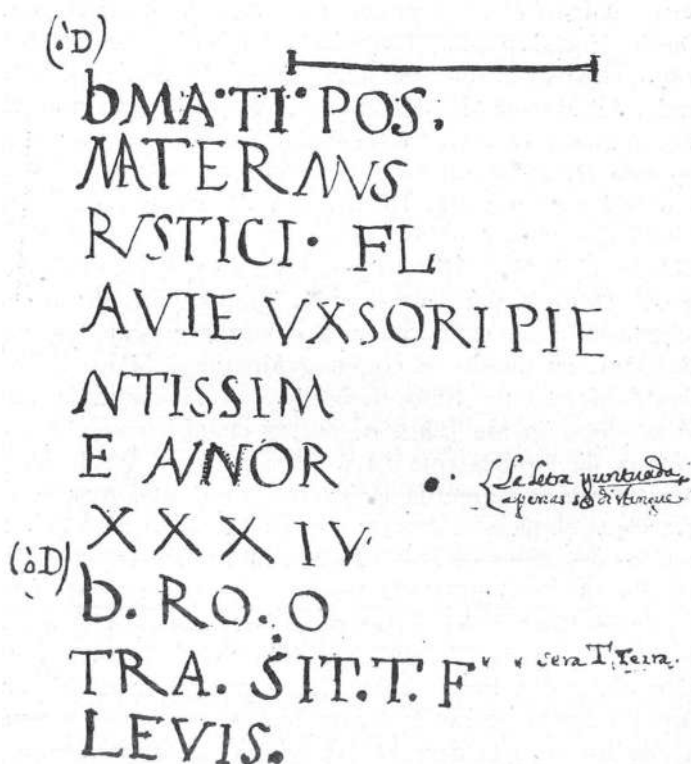 (òD)
bMA·TI·POS.
MATERNVS
RVSTICI· FL
AVIE VXSORI PIE
NTISSIM
E ANNOR
La letra puntuada
apenas se distingue
XXXIV
(òD)
b. RO. O
TRA. SIT.T. F sera T. Terra.
LEVIS.